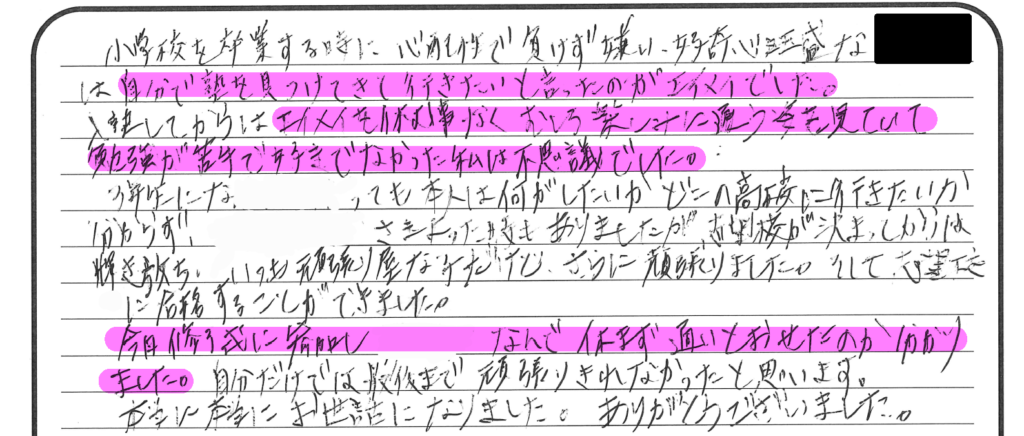 小学校を卒業する時に 心配性で負けず嫌い、好奇心旺盛な
は自分で塾を見つけてきて行きたいと言ったのがエイメイでした。
入塾してからはエイメイを休む事なく むしろ楽しそうに通う姿を見ていて
勉強が苦手で好きでなかった私は不思議でした。
3年生にな っても本人は何がしたいか どこの高校に行きたいか
分からず、 さまよった時もありましたが 志望校が決まってからは
輝き放ち、いつも頑張り屋な子だけど、さらに頑張りました。そして志望校
に合格することができました。
今日修了式に参加し なんで休まず通いとおせたのか分かり
ました。自分だけでは最後まで頑張りきれなかったと思います。
本当に本当にお世話になりました。ありがとうございました。